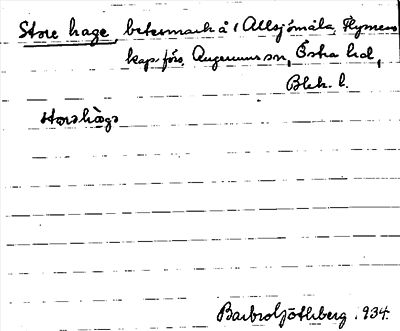 Store hage, betesmark å 1 Allsjömåla, Flymens
kap. förs. Augerums sn, Östra hd,
Blek. l.
storahags
Barbro Götlberg. 934.